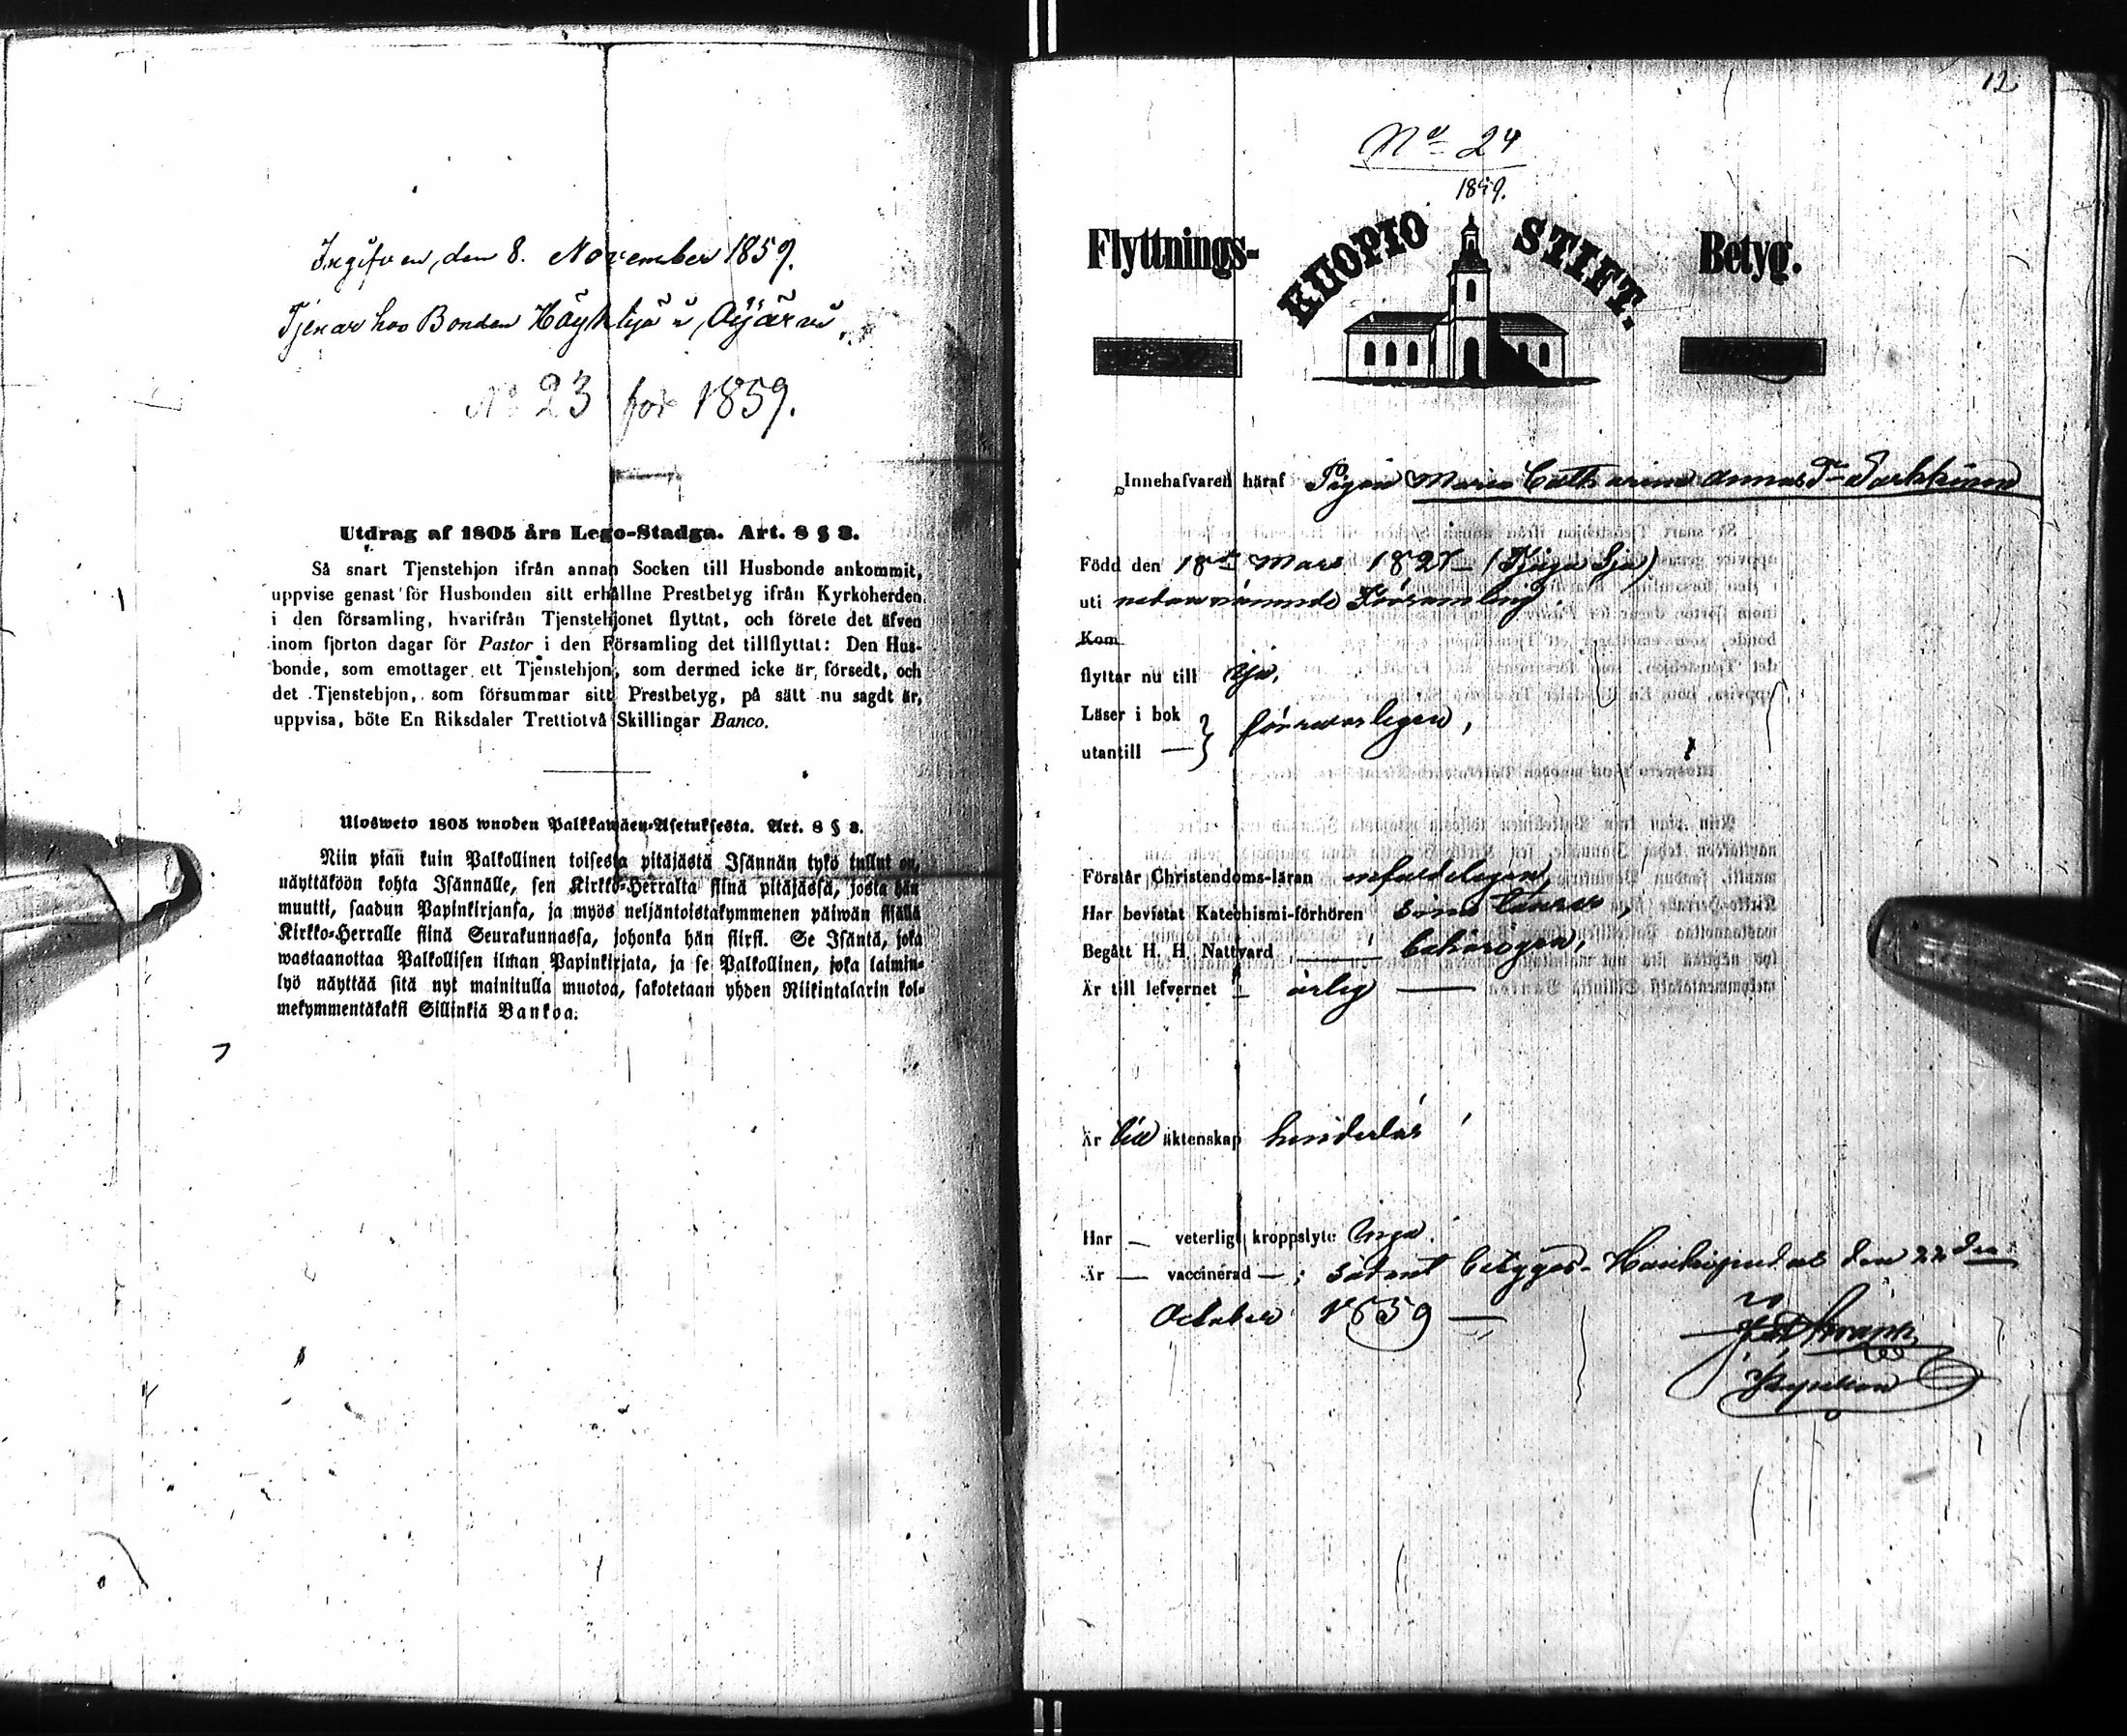 Ingifven, den 8. November 1859.
Tjenar hos Bonden
No 23 för 1859.
Utdrag af 1805 års Lego-Stadga. Art. 8 § 8.
Så snart Tjenstehjon ifrån annan Socken till Husbonde ankommit,
uppvise genast för Husbonden sitt erhållne Prestbetyg ifrån Kyrkoherden
i den församling, hvarifrån Tjenstehjonet flyttat, och förete det äfven
inom fjorton dagar för Pastor i den Församling det tillflyttat: Den Hus-
bonde, som emottager ett Tjenstehjon, som dermed icke är försedt, och
det Tjenstehjon, som försummar sitt Prestbetyg, på sätt nu sagdt är,
uppvisa, böte En Riksdaler Trettiotvå Skillingar Banco.
Ulosweto 1805 wuoden Palkkawäen-Asetuksesta. Art. 8 § 8.
Niin pian kuin Palkollinen toisesta pitäjästä Isännän tykö tullut on,
näyttäköön kohta Isännälle, sen Kirkko-Herralta siinä pitäjässä, josta hän
muutti, saadun Papinkirjansa, ja myös neljäntoistakymmenen päiwän sisällä
Kirkko-Herralle siinä Seurakunnassa, johonka hän siirsi. Se Isäntä, joka
wastaanottaa Palkollisen ilman Papinkirjata, ja se Palkollinen, joka laimin-
lyö näyttää sitä nyt mainitulla muotoa, sakotetaan yhden Riikintalarin kol-
mekymmentäkaksi Sillinkiä Bankoa.
12
No 24
1859.
Flyttnings- KUOPIO STIFT. Betyg.
Innehafvaren häraf Pigan Maria Catharina Annas Dr
Född den 18de Mars 1827
uti nedannämnde Församling.
Kom
flyttar nu till
Läser i bok
utantill — } försvarligen,
Förstår Christendoms-läran enfaldeligen,
Har bevistat Katechismi-förhören
Begått H. H. Nattvard behörigen,
Är till lefvernet ärlig —
Är till äktenskap hinderlös
Har — veterligt kroppslyte inga.
Är — vaccinerad — ; sådant betygas. den 22dra
October 1859 —